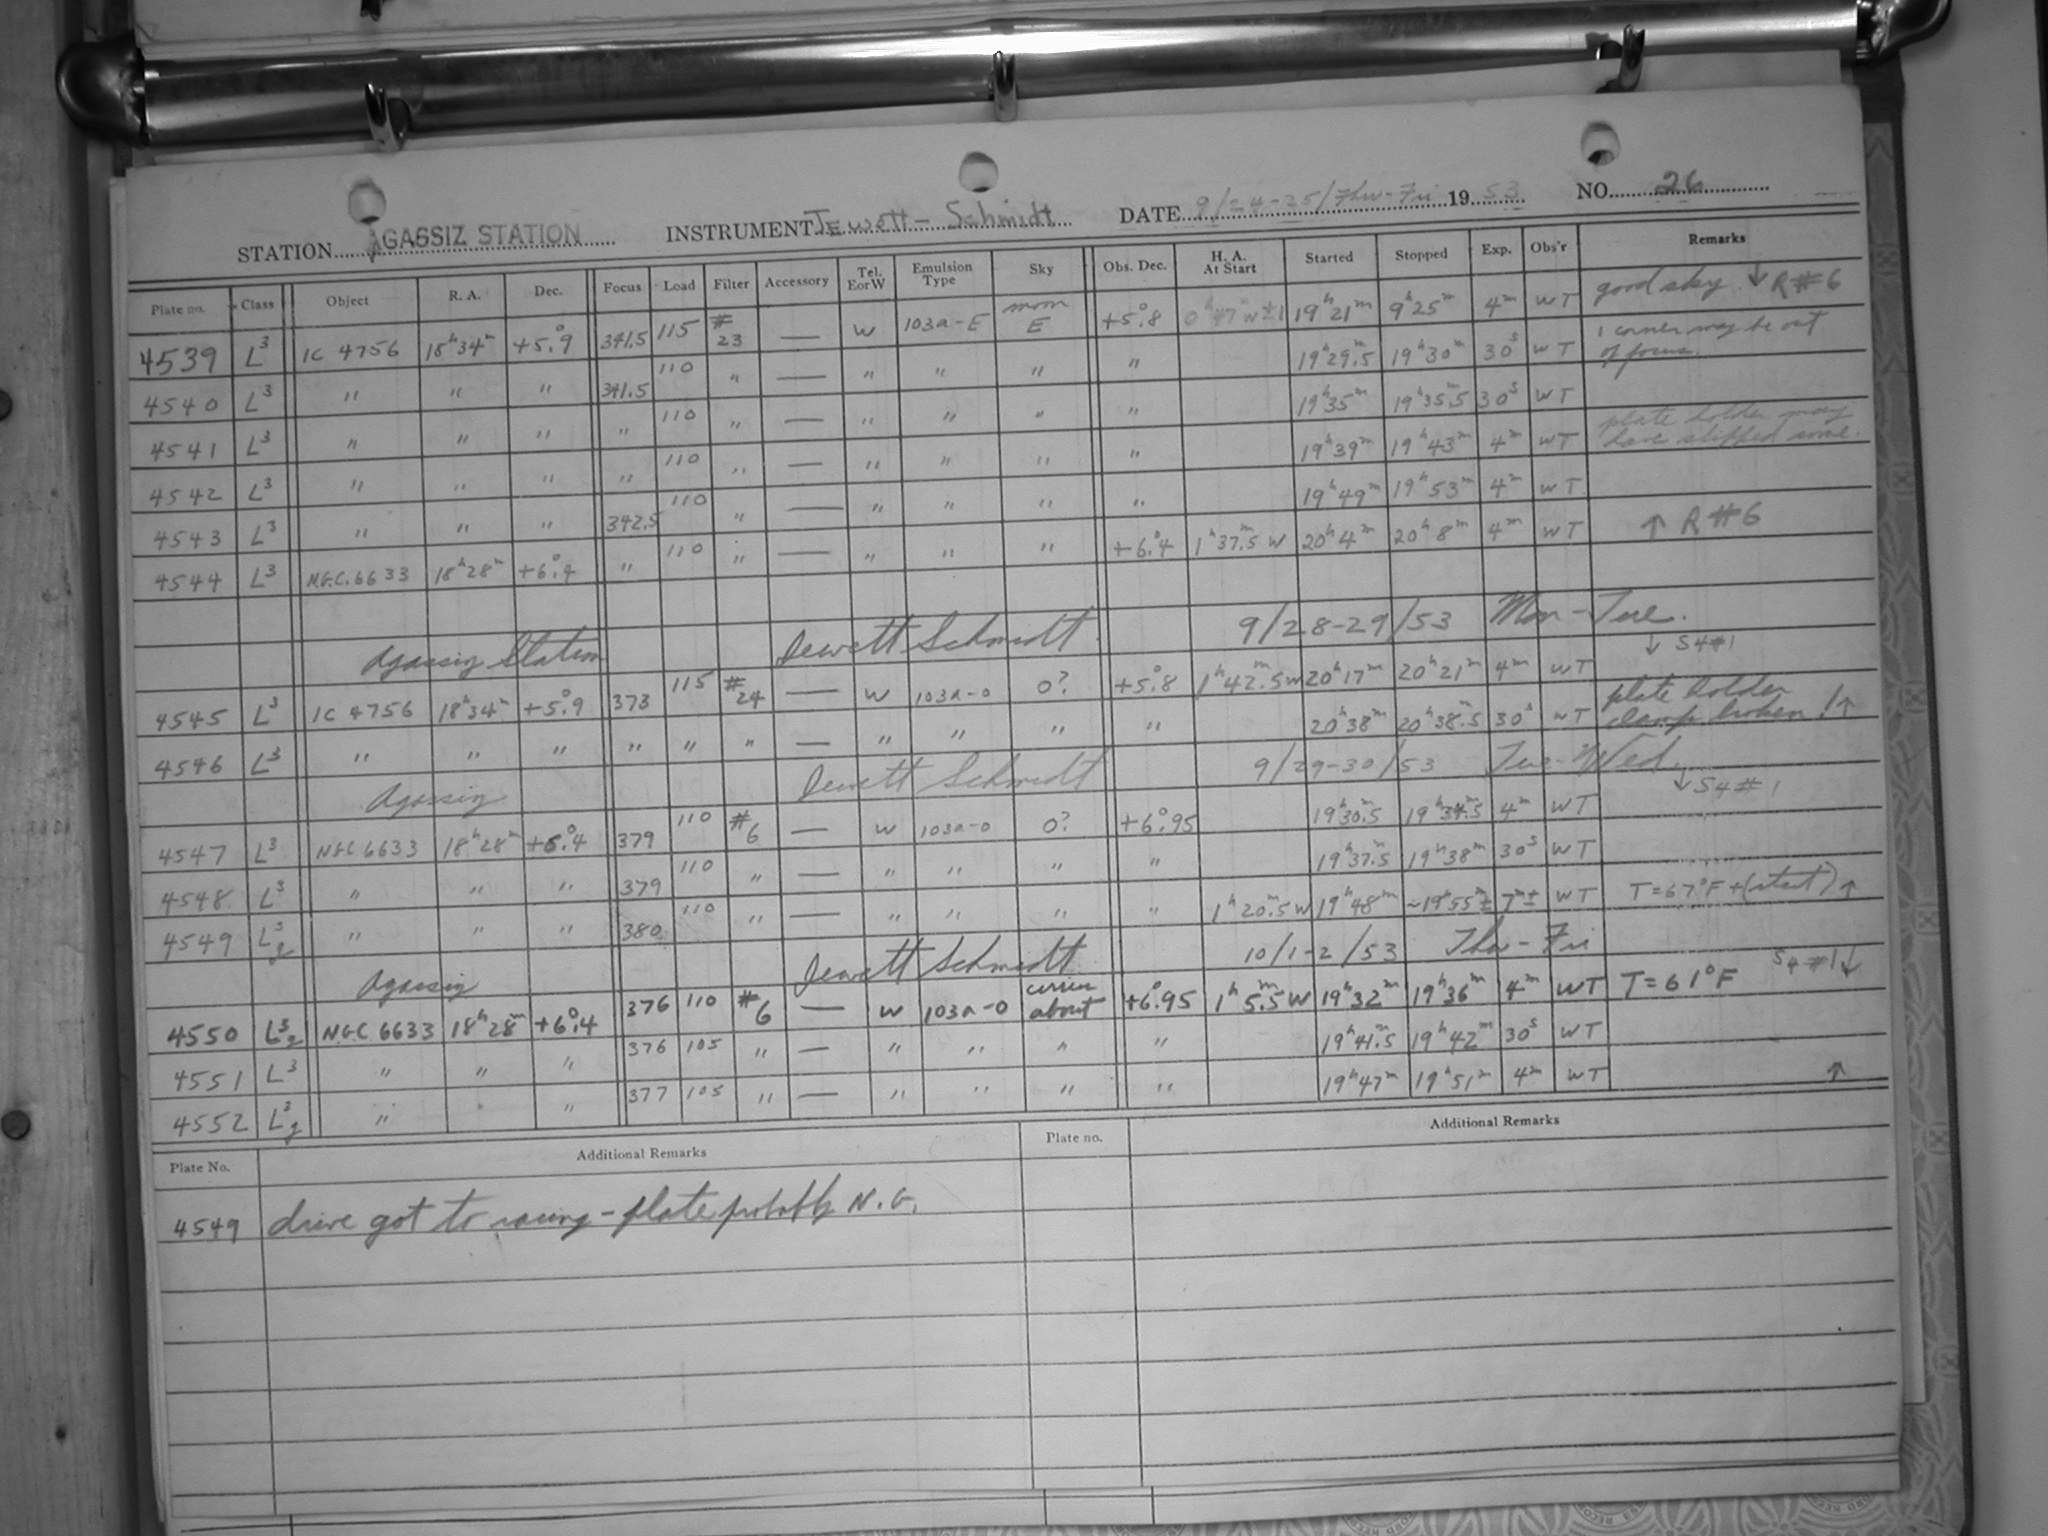 STATION AGASSIZ STATION INSTRUMENT Jewett - Schmidt DATE 9/24-25/Thu-Fri 1953 NO. 26
Plate no. Class Object R. A. Dec. Focus Load Filter Accessory Tel. EorW Emulsion Type Sky Obs. Dec. H. A. At Start Started Stopped Exp. Obs'r Remarks
4539 L3 IC 4756 18h34m +5°.9 341.5 115 #23 — W 103a-E moon E +5°.8 0h47m W±1 19h21m 9h25m 4m WT good sky ↓ R#6
4540 L3 " " " 341.5 110 " — " " " " 19h29m.5 19h30m 30s WT 1 corner may be out of focus.
4541 L3 " " " " 110 " — " " " " 19h35m 19h35m.5 30s WT
4542 L3 " " " " 110 " — " " " " 19h39m 19h43m 4m WT plate holder may have slipped some.
4543 L3 " " " 342.5 110 " — " " " " 19h49m 19h53m 4m WT
4544 L3 N.G.C. 6633 18h28m +6°.4 " 110 " — " " " +6°.4 1h37m.5 W 20h4m 20h8m 4m WT ↑ R#6
Agassiz Station Jewett Schmidt 9/28-29/53 Mon-Tue. ↓ S4#1
4545 L3 IC 4756 18h34m +5°.9 373 115 #24 — W 103a-O 0? +5°.8 1h42m.5 W 20h17m 20h21m 4m WT
4546 L3 " " " " " " — " " " " 20h38m 20h38m.5 30s WT plate holder clamp broken! ↑
Agassiz Jewett Schmidt 9/29-30/53 Tue-Wed. ↓ S4#1
4547 L3 NGC 6633 18h28m +6°.4 379 110 #6 — W 103a-O 0? +6°.95 19h30m.5 19h34m.5 4m WT
4548 L3 " " " 379 110 " — " " " " 19h37m.5 19h38m 30s WT
4549 L3g " " " 380 110 " — " " " " 1h20m.5 W 19h48m ~19h55m± 7m± WT T=67°F+(start) ↑
Agassiz Jewett Schmidt 10/1-2/53 Thu-Fri S4#1↓
4550 L3g N.G.C. 6633 18h28m +6°.4 376 110 #6 — W 103a-O cirrus about +6°.95 1h5m.5 W 19h32m 19h36m 4m WT T=61°F
4551 L3 " " " 376 105 " — " " " " 19h41m.5 19h42m 30s WT
4552 L3g " " " 377 105 " — " " " " 19h47m 19h51m 4m WT ↑
Plate No. Additional Remarks Plate no. Additional Remarks
4549 drive got to racing - plate probably N.G.